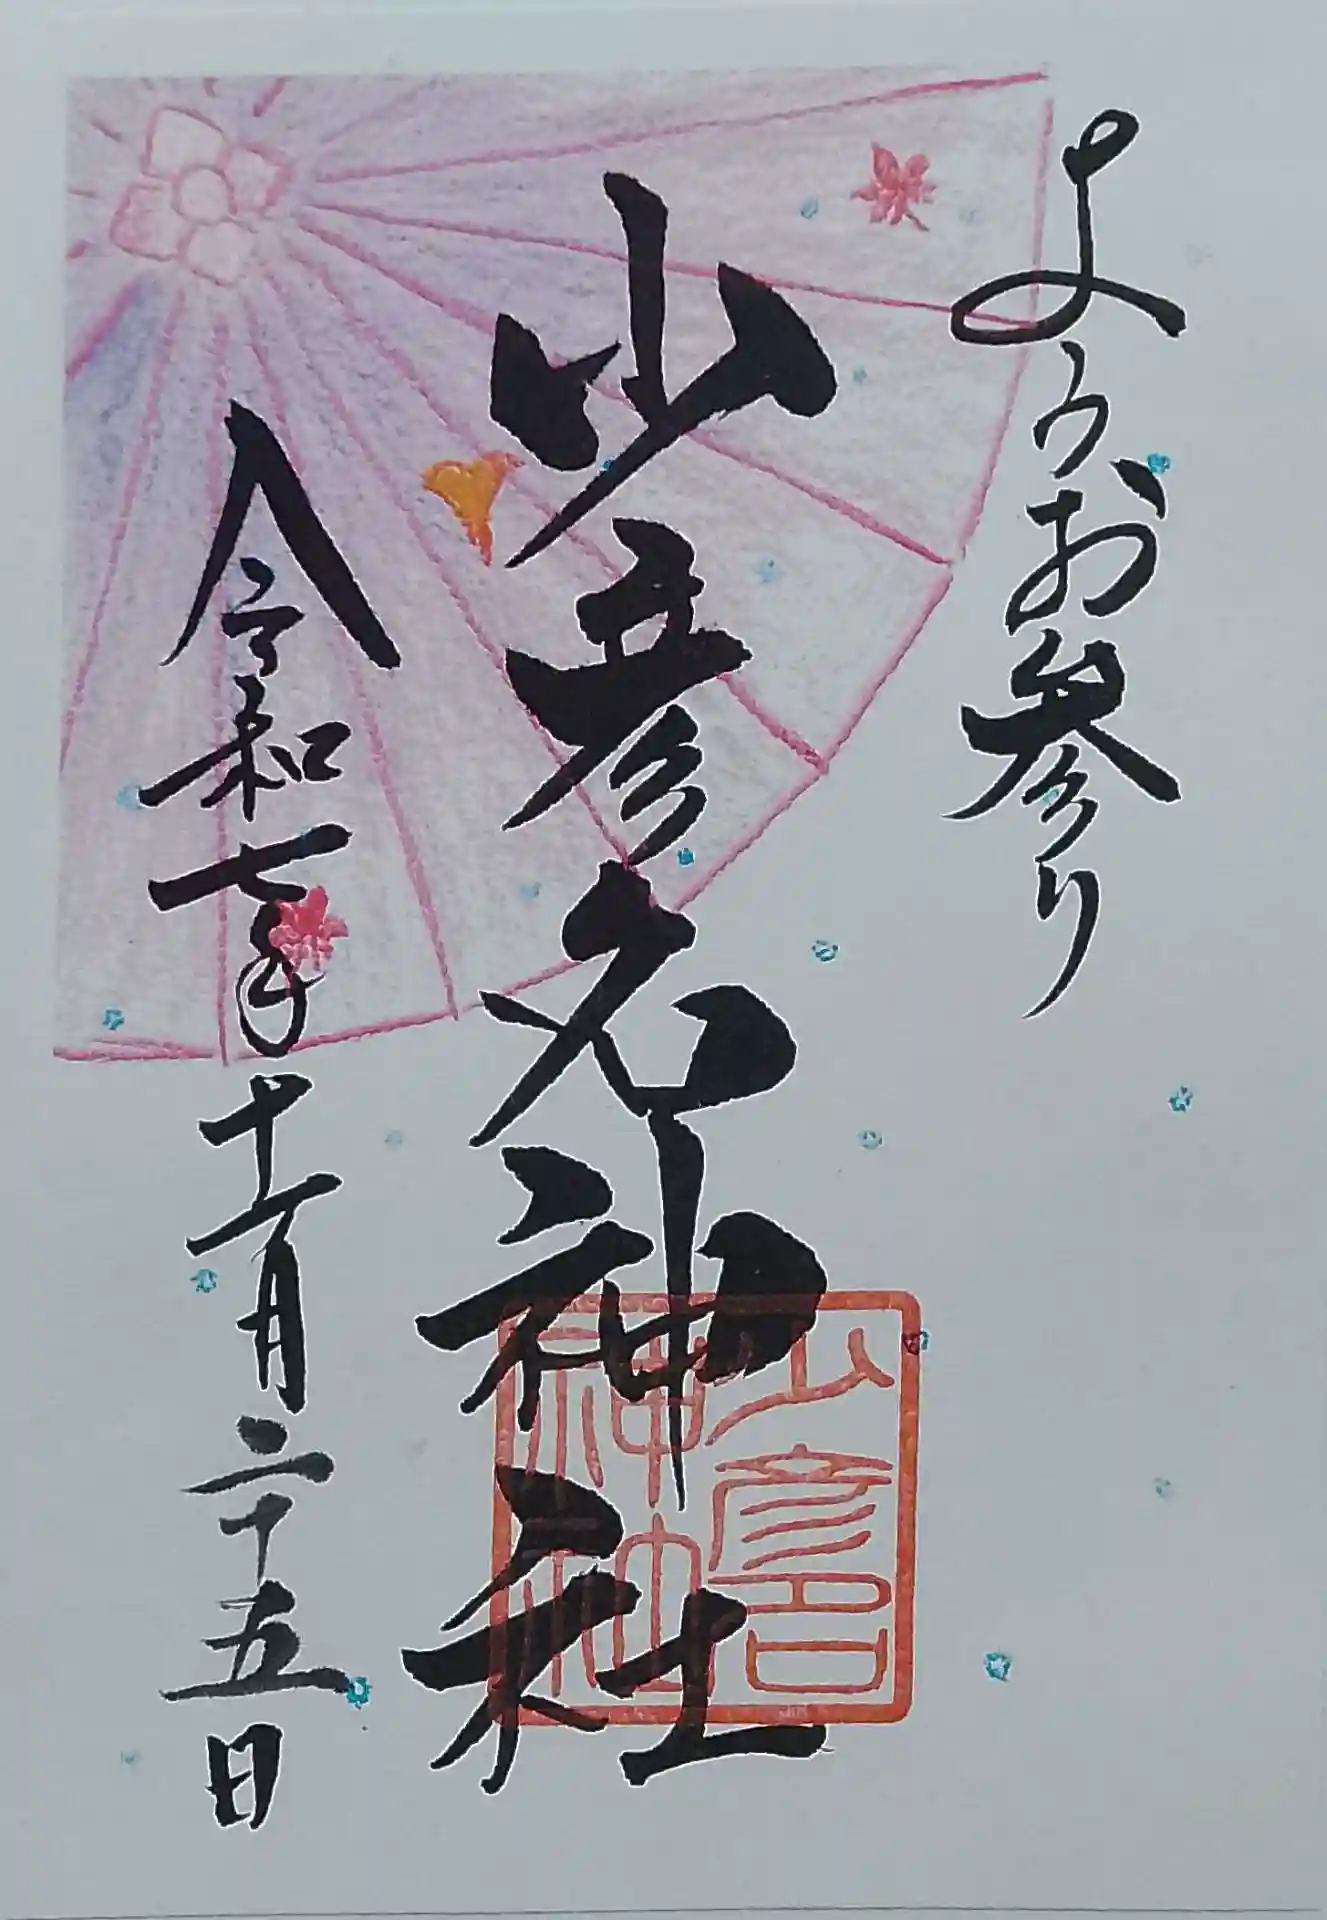 ようお参り
少彦名神社
少彦名
神社
令和七年十一月二十五日